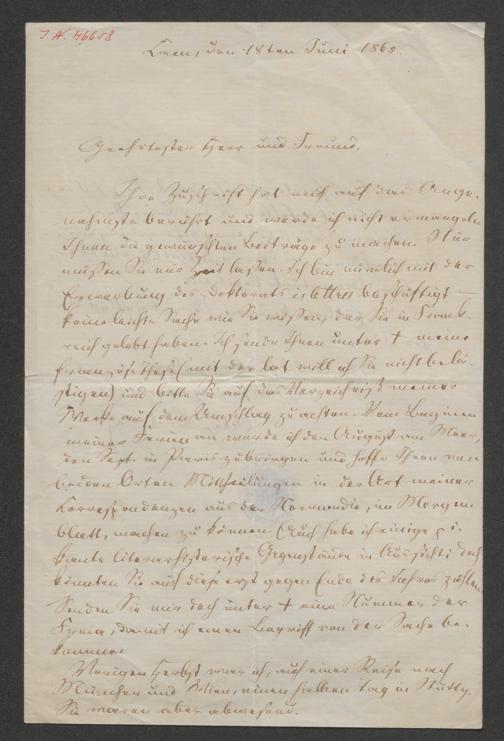 J. N. 46658
Caen, den 18ten Juni 186
Geehrtester Herr und Freund,
Ihre Zuschrift hat mich auf das Ange-
nehmste berührt und werde ich nicht ermangeln
Ihnen die gewünschten Beiträge zu machen. Nur
müssen Sie mir Zeit lassen. Ich bin nämlich mit der
Erwerbung des Doktorats ès lettres beschäftigt –
keine leichte Sache wie Sie wissen, der Sie in Frank-
reich gelebt haben. Ich sende Ihnen unter + meine
französ. thèse (mit der lat. will ich Sie nicht belä-
stigen) und bitte Sie auf das Verzeichniß meiner
Werke auf dem Umschlag zu achten. Vom Beginnen
meiner Ferien an werde ich den August am Meer,
den Sept. in Paris zubringen und hoffe Ihnen von
beiden Orten Mittheilungen in der Art meiner
Korrespondenzen aus der Normandie, im Morgen-
blatt, machen zu können. Auch habe ich einige pi-
kante literarhistorische Gegenstände in Aussicht; doch
könnten Sie auf diese erst gegen Ende des Jahres zählen.
Senden Sie mir doch unter + eine Nummer der
Freia, damit ich einen Begriff von der Sache be-
komme.
Vorigen Herbst war ich, auf einer Reise nach
München und Wien, einen halben Tag in Stuttg.
Sie waren aber abwesend.